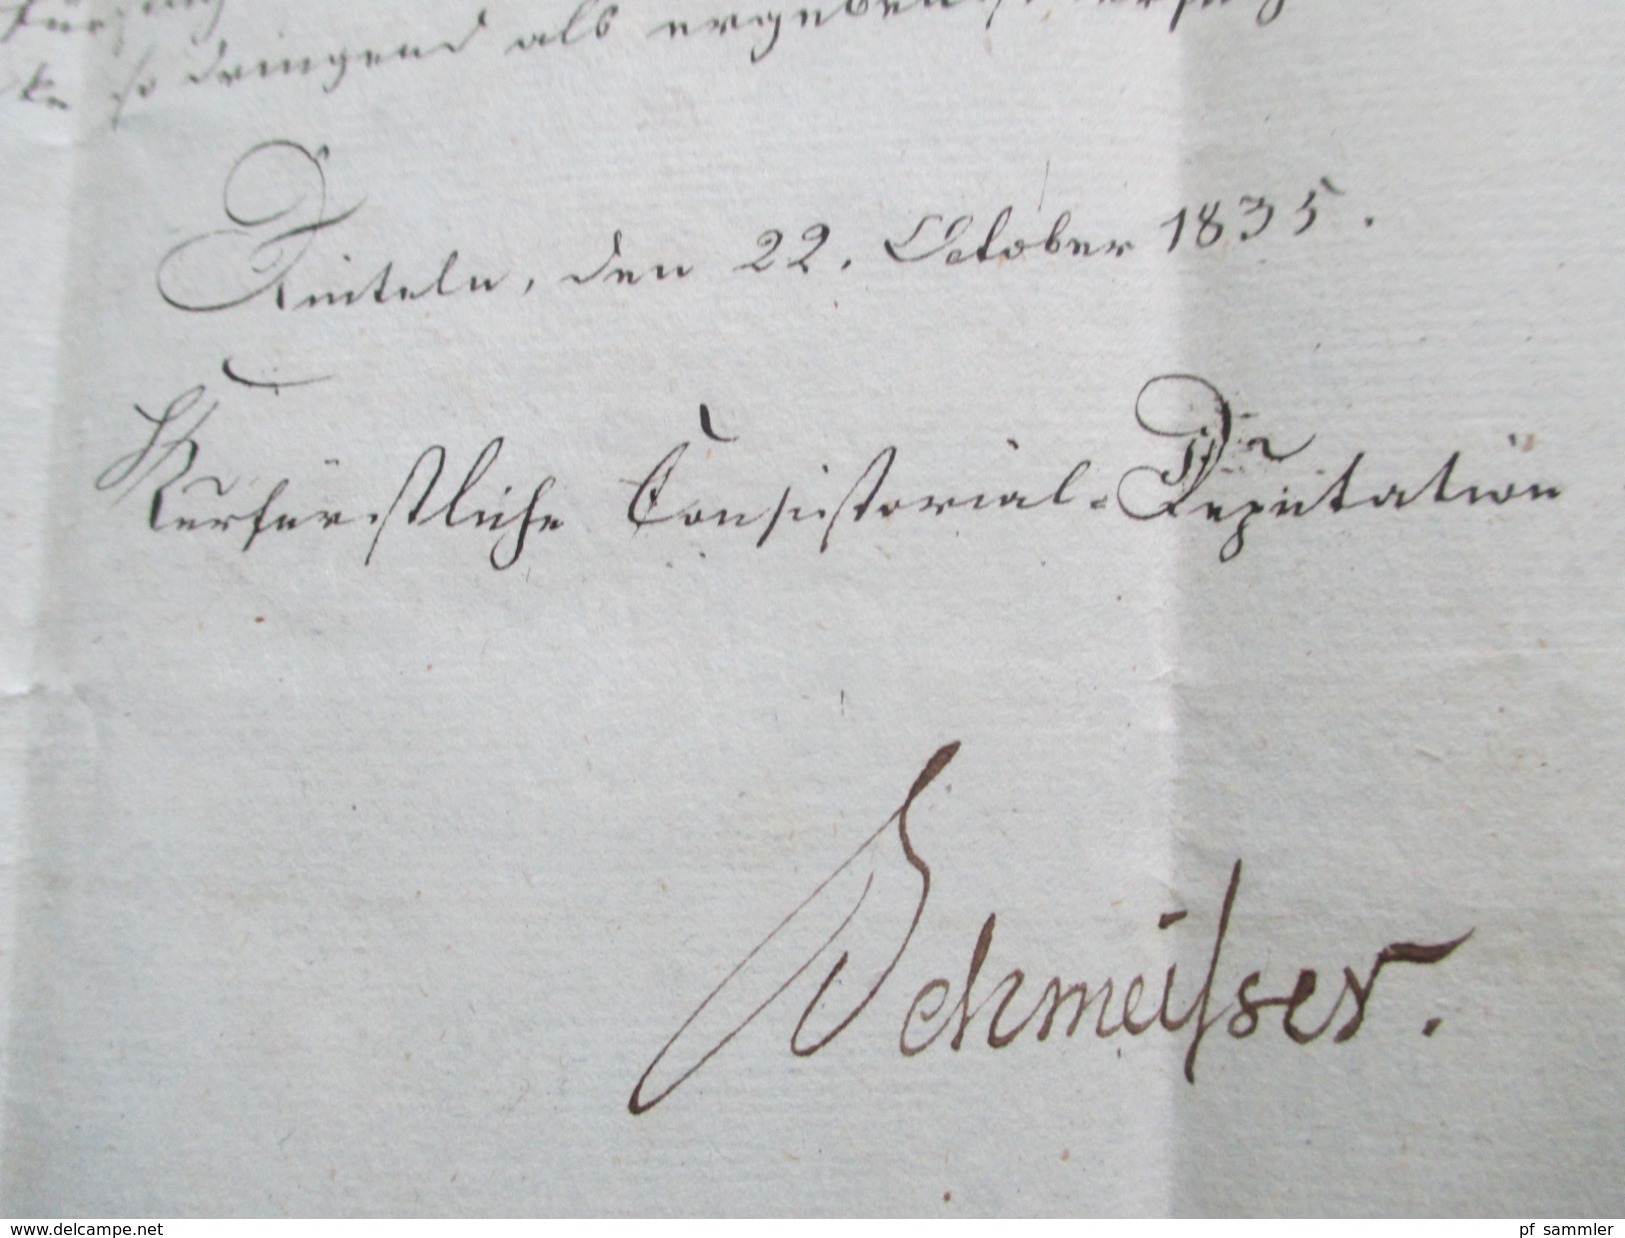 so dringend als ergebenst
Rinteln, den 22. October 1835.
Kurfürstliche Consistorial-Deputation
Schmeisser.
www.delcampe.net
pf sammler